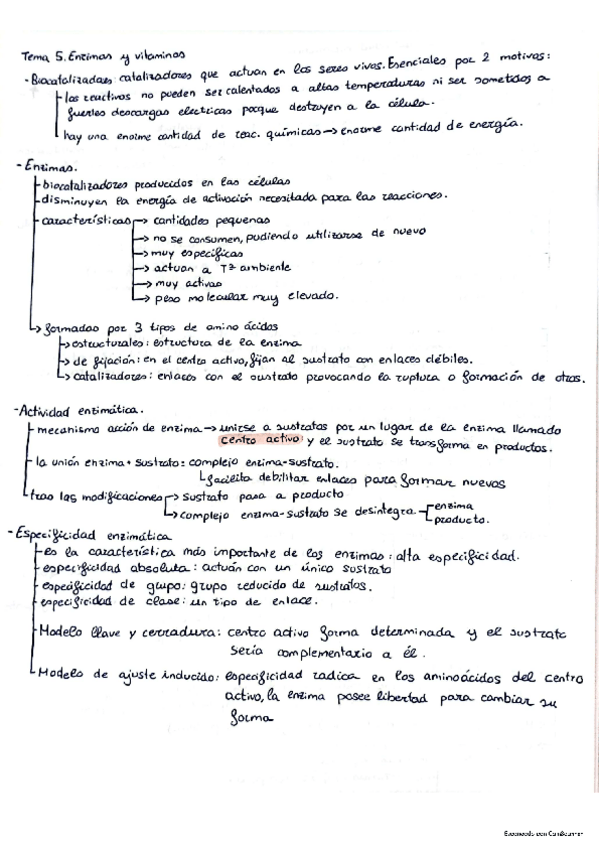 Tema 5. Enzimas y vitaminas
- Biocatalizadores: catalizadores que actuan en los seres vivos. Esenciales por 2 motivos:
los reactivos no pueden ser calentados a altas temperaturas ni ser sometidos a
fuertes descargas electricas porque destruyen a la célula.
hay una enorme cantidad de reac. químicas → enorme cantidad de energía.
- Enzimas.
biocatalizadores producidos en las células
disminuyen la energía de activación necesitada para las reacciones.
características → cantidades pequeñas
→ no se consumen, pudiendo utilizarse de nuevo
→ muy específicas
→ actuan a Tª ambiente
→ muy activas
→ peso molecular muy elevado.
→ formadas por 3 tipos de amino ácidos
→ estructurales: estructura de la enzima
→ de fijación: en el centro activo, fijan al sustrato con enlaces débiles.
→ catalizadores: enlaces con el sustrato provocando la ruptura o formación de otros.
- Actividad enzimática.
mecanismo acción de enzima → unirse a sustratos por un lugar de la enzima llamado
centro activo: y el sustrato se transforma en productos.
la unión enzima + sustrato: complejo enzima-sustrato.
facilita debilitar enlaces para formar nuevos
tras las modificaciones → sustrato pasa a producto
→ complejo enzima-sustrato se desintegra enzima
producto.
- Especificidad enzimática
es la característica más importante de las enzimas: alta especificidad.
especificidad absoluta: actuán con un único sustrato
especificidad de grupo: grupo reducido de sustratos.
especificidad de clase: un tipo de enlace.
Modelo llave y cerradura: centro activo forma determinada y el sustrato
sería complementario a él.
Modelo de ajuste inducido: especificidad radica en los aminoácidos del centro
activo, la enzima posee libertad para cambiar su
forma
Escaneado con CamScanner